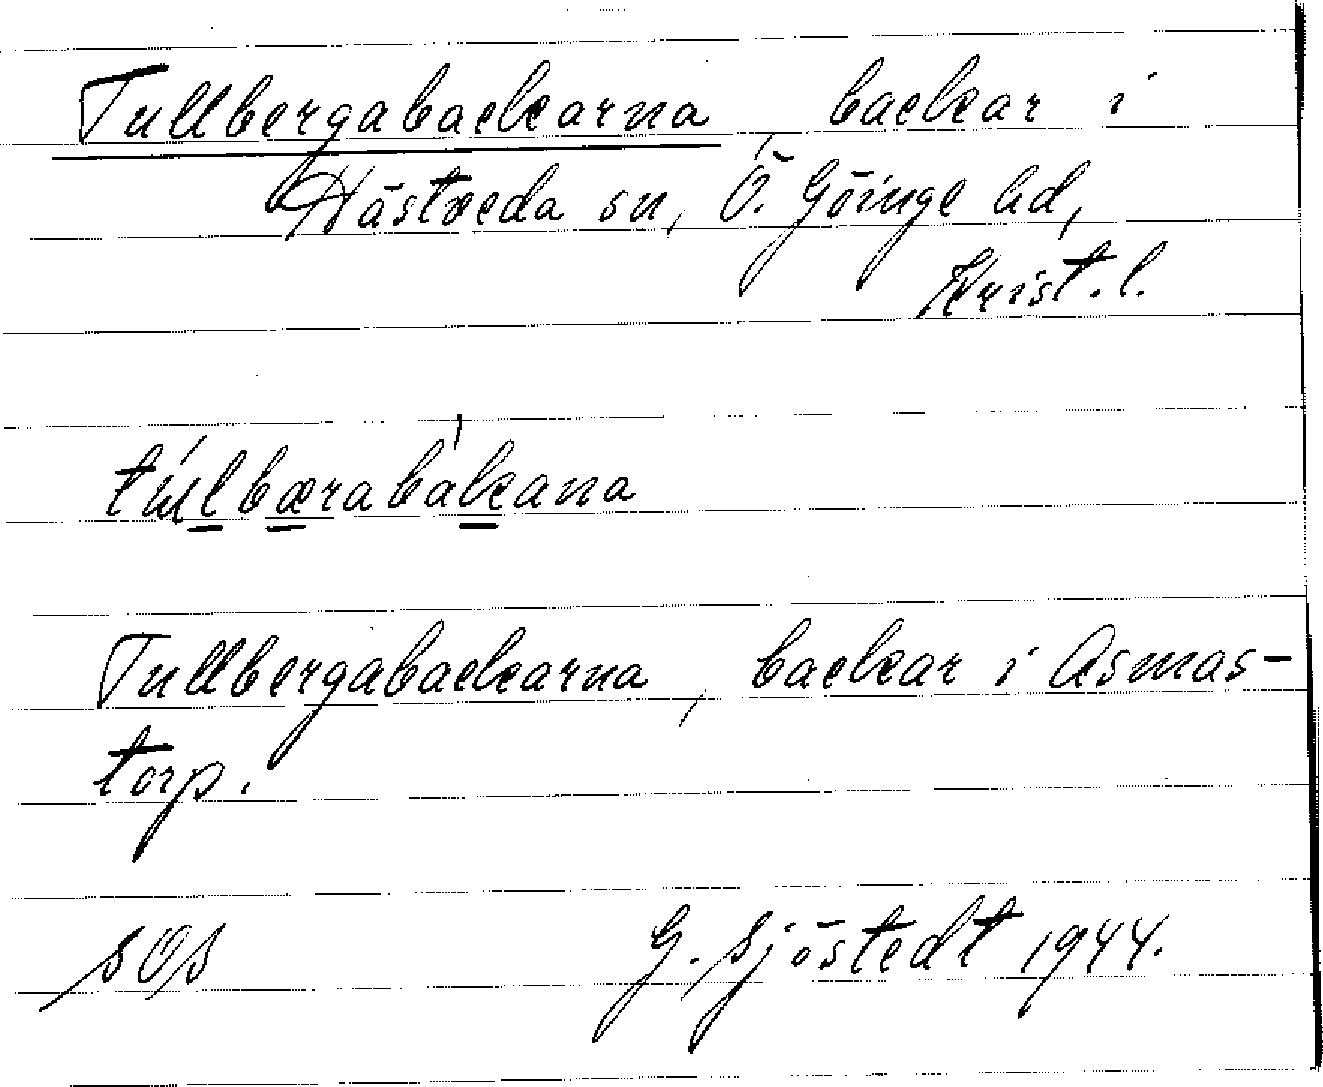 Tullbergabackarna, backar i
Hästveda sn, Ö. Göinge hd,
Krist. l.
túlbærabàkana
Tullbergabackarna, backar i Asmas-
torp.
SOS G. Sjöstedt 1944.